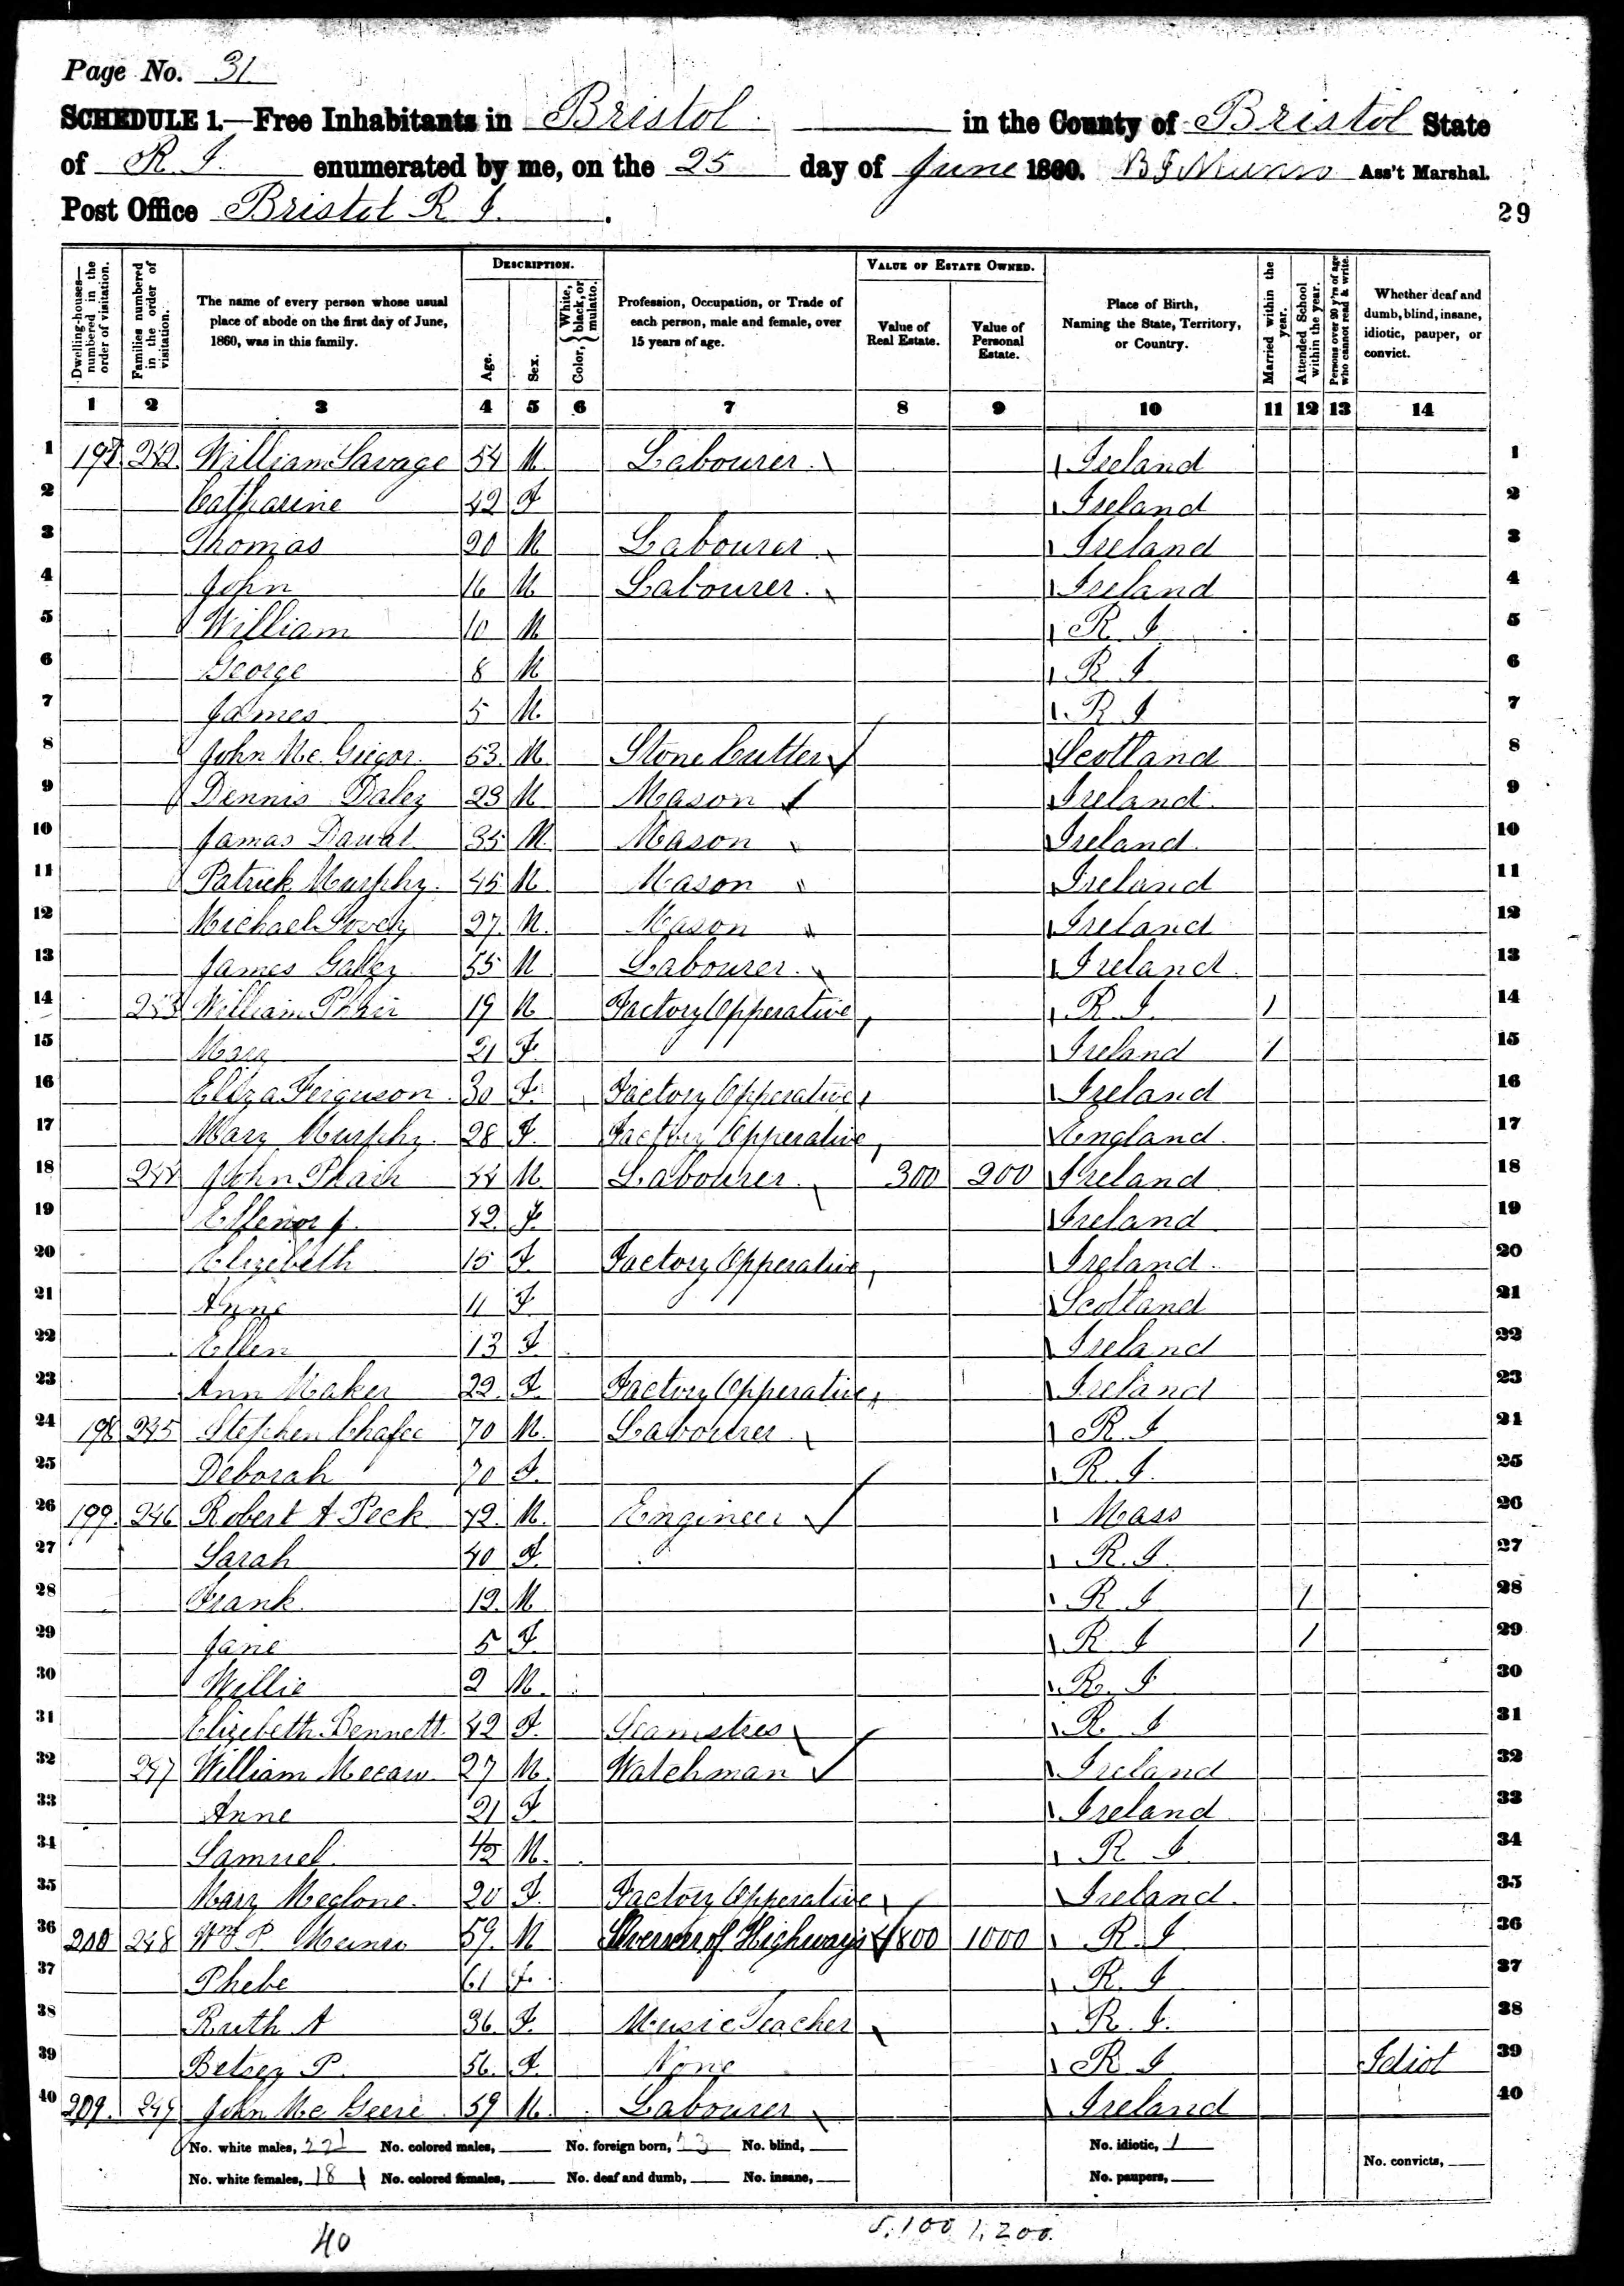 Page No. 31
SCHEDULE 1.—Free Inhabitants in Bristol in the County of Bristol State
of R. I. enumerated by me, on the 25 day of June 1860. Ass't Marshal.
Post Office Bristol R I.
29
Dwelling-houses—numbered in the order of visitation. Families numbered in the order of visitation. The name of every person whose usual place of abode on the first day of June, 1860, was in this family. DESCRIPTION. Age. Sex. Color, {White, black, or mulatto. Profession, Occupation, or Trade of each person, male and female, over 15 years of age. VALUE OF ESTATE OWNED. Value of Real Estate. Value of Personal Estate. Place of Birth, Naming the State, Territory, or Country. Married within the year. Attended School within the year. Persons over 20 y'rs of age who cannot read & write. Whether deaf and dumb, blind, insane, idiotic, pauper, or convict.
1 2 3 4 5 6 7 8 9 10 11 12 13 14
1 197 242 William Savage 54 M Labourer Ireland 1
2 Catharine 42 F Ireland 2
3 Thomas 20 M Labourer Ireland 3
4 John 16 M Labourer Ireland 4
5 William 10 M R. I 5
6 George 8 M R. I 6
7 James 5 M R I 7
8 John Mc Gregor 53 M Stone Cutter Scotland 8
9 Dennis Daley 23 M Mason Ireland 9
10 James 35 M Mason Ireland 10
11 Patrick Murphy 45 M Mason Ireland 11
12 Michael 27 M Mason Ireland 12
13 James 55 M Labourer Ireland 13
14 243 William 19 M Factory Opperative R. I. 1 14
15 Mary 21 F Ireland 1 15
16 Eliza Ferguson 30 F Factory Opperative Ireland 16
17 Mary Murphy 28 F Factory Opperative England 17
18 244 John 44 M Labourer 300 200 Ireland 18
19 Ellenor 42 F Ireland 19
20 Elizebeth 15 F Factory Opperative Ireland 20
21 Anne 11 F Scotland 21
22 Ellen 13 F Ireland 22
23 Ann Maker 22 F Factory Opperative Ireland 23
24 198 245 Stephen Chafee 70 M Labourer R. I 24
25 Deborah 70 F R. I. 25
26 199 246 Robert A Peck 42 M Engineer Mass 26
27 Sarah 40 F R. I. 27
28 Frank 12 M R I 1 28
29 Jane 5 F R I 1 29
30 Willie 2 M R. I 30
31 Elizebeth Bennett 42 F Seamstres R. I 31
32 247 William Mecaw 27 M Watchman Ireland 32
33 Anne 21 F Ireland 33
34 Samuel M R I 34
35 Mary Meglone 20 F Factory Opperative Ireland 35
36 200 248 Wm P. Munro 59 M Overseer of Highways 4800 1000 R. I 36
37 Phebe 61 F R. I 37
38 Ruth A 36 F Music Teacher R. I. 38
39 Betsey P. 56 F None R I Idiot 39
40 209 249 John Mc 59 M Labourer Ireland 40
No. white males, 22 No. colored males, No. foreign born, 23 No. blind, No. idiotic, 1
No. white females, 18 No. colored females, No. deaf and dumb, No. insane, No. paupers, No. convicts,
40 5,100 1,200.